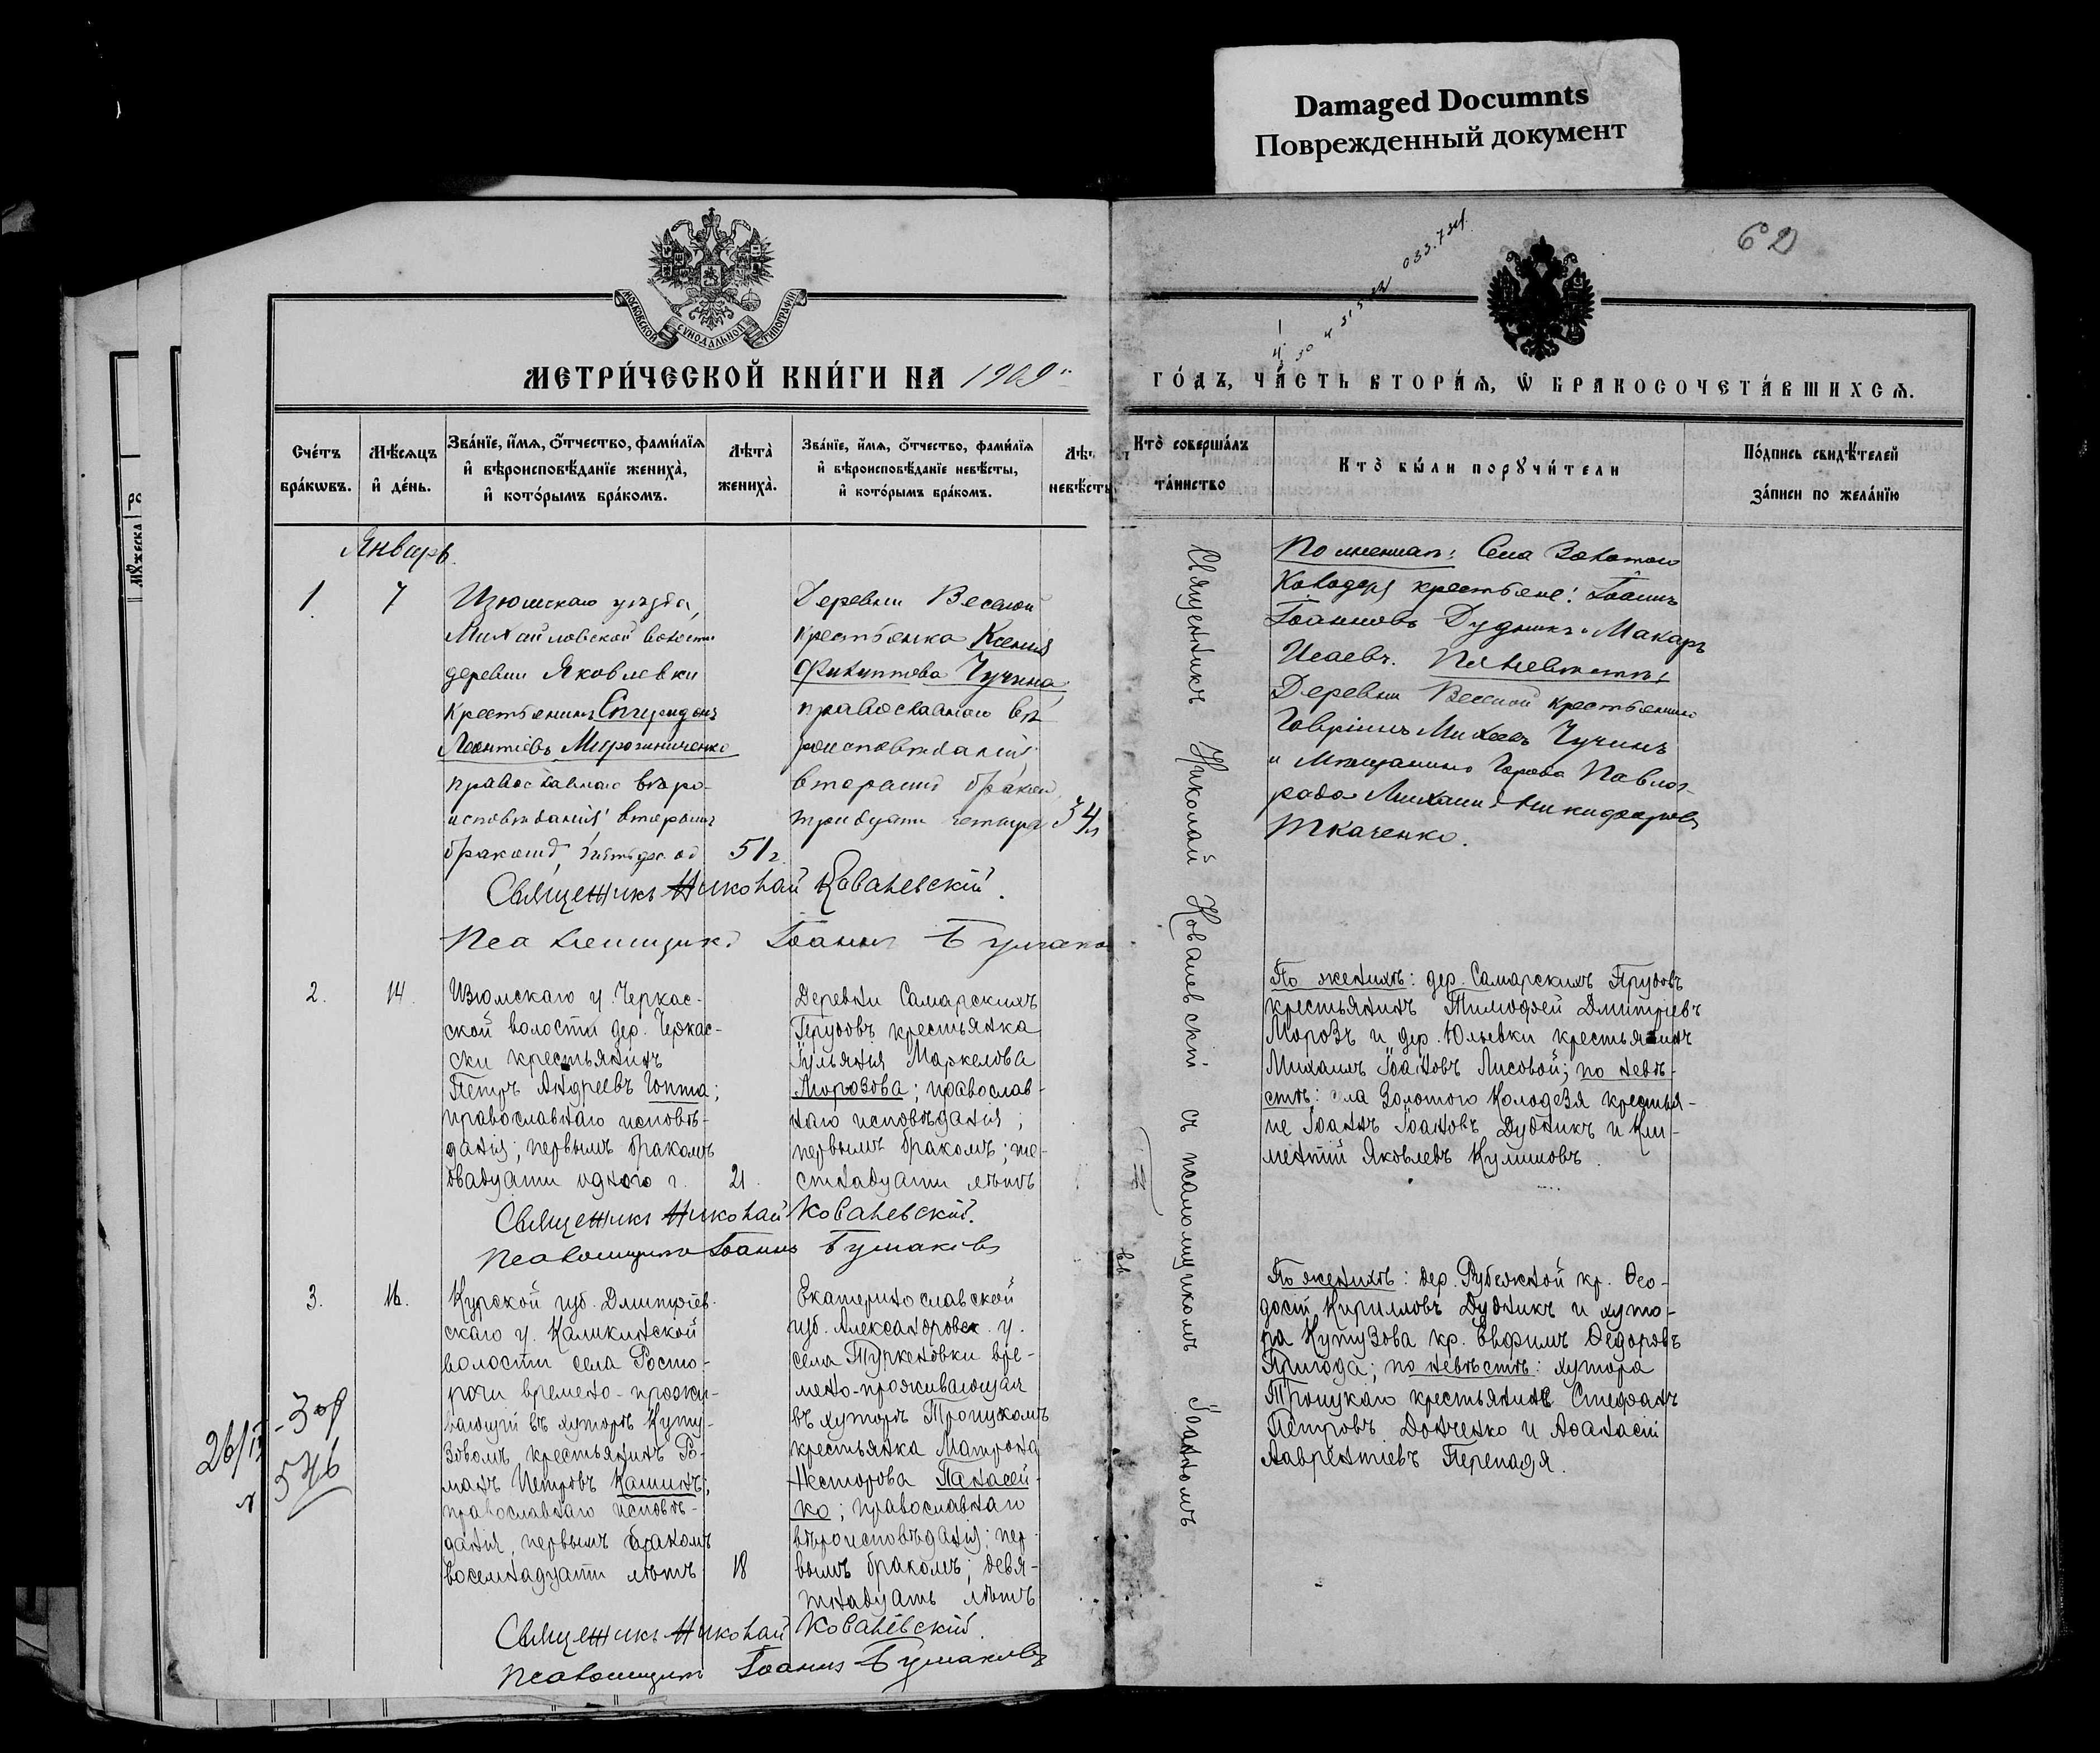 Damaged Documnts
Поврежденный документ
МОСКОВСКОЙ СѴНОДАЛЬНОЙ ТИПОГРАФІИ
МЕТРИ́ЧЕСКОЙ КНИ́ГИ НА 1909
ГО́ДЪ, ЧА́СТЬ ВТОРА́Ѧ, Ѡ҆ БРАКОСОЧЕТА́ВШИХСѦ.
Сче́тъ бра́кѡвъ.
Мѣ́сѧцъ и҆ де́нь.
Зва́нїе, и҆́мѧ, ѻ҆́тчество, фами́лїѧ
и҆ вѣроисповѣ́данїе жениха̀,
и҆ кото́рымъ бра́комъ.
Лѣта̀ жениха̀.
Зва́нїе, и҆́мѧ, ѻ҆́тчество, фами́лїѧ
и҆ вѣроисповѣ́данїе невѣ́сты,
и҆ кото́рымъ бра́комъ.
Лѣт невѣ́сты
Кто̀ соверша́лъ
та́инство
Кто̀ бы́ли порꙋчи́тели
По́дпись свидѣ́телей
за́писи по жела́нїю
Январь.
1.
7
Изюмскаго уѣзда,
Михайловской волости
деревни Яковлевки
крестьянинъ Спиридонъ
Леонтіевъ
православнаго вѣро-
исповѣданія вторымъ
бракомъ,
51 г.
Деревни Веселой
крестьянка Ксенія
Филиппова Чучина,
православнаго вѣ
роисповѣданія,
вторымъ бракомъ,
тридцати четыре
34
Священникъ Николай Ковалевскій.
Псаломщикъ Іоаннъ
Села Золотого
Колодезя крестьяне: Іоаннъ
Іоанновъ Дудникъ и Макаръ
Исаевъ. По невѣстѣ:
Деревни Веселой крестьянинъ
Гавріилъ Михеевъ Чучинъ
и Мѣщанинъ города Павлог-
рада Михаилъ Никифоровъ
Ткаченко.
2.
14.
Изюмскаго у. Черкас-
ской волости дер. Черкас-
ски крестьянинъ
Петръ Андреевъ Гопта;
православнаго исповѣ-
данія; первымъ бракомъ
двадцати одного г.
21.
Деревни Самарскихъ
Прудовъ крестьянка
Іульянія Маркелова
Морозова; православ-
наго исповѣданія;
первымъ бракомъ; ше-
стнадцати лѣтъ
Священникъ Николай Ковалевскій.
Псаломщикъ Іоаннъ
По женихѣ: дер. Самарскихъ Прудовъ
крестьянинъ Тимофей Дмитріевъ
Морозъ и дер. Юльевки крестьянинъ
Михаилъ Іоановъ Лисовой; по невѣ-
стѣ: села Золотого Колодезя крестья-
не Іоанъ Іоановъ Дудникъ и Кли-
ментій Яковлевъ Кулишовъ.
3.
16.
Курской губ. Дмитріев-
скаго у.
волости села Росто-
рочи времено-прожи-
вающій въ хуторѣ Куту-
зовомъ крестьянинъ Ро-
манъ Петровъ Кашинъ;
православнаго исповѣ-
данія, первымъ бракомъ
восемнадцати лѣтъ
18
Екатеринославской
губ. Александровск. у.
села Туркеновки вре-
мено-проживающая
въ хуторѣ Троицкомъ
крестьянка Матрона
Несторова Панасей-
ко; православнаго
вѣроисповѣданія; пер-
вымъ бракомъ; девя-
тнадцать лѣтъ
Священникъ Николай Ковалевскій.
Псаломщикъ Іоаннъ
По женихѣ: дер. Рубежной кр. Ѳео-
досій Кирилловъ Дудникъ и хуто-
ра Кутузова кр. Евфимъ Ѳедоровъ
Пригода; по невѣстѣ: хутора
Троицкаго крестьянине Стефанъ
Петровъ Донченко и Аѳанасій
Лаврентіевъ Перепадя.
Священникъ Николай Ковалевскій съ псаломщикомъ Іоанномъ
546